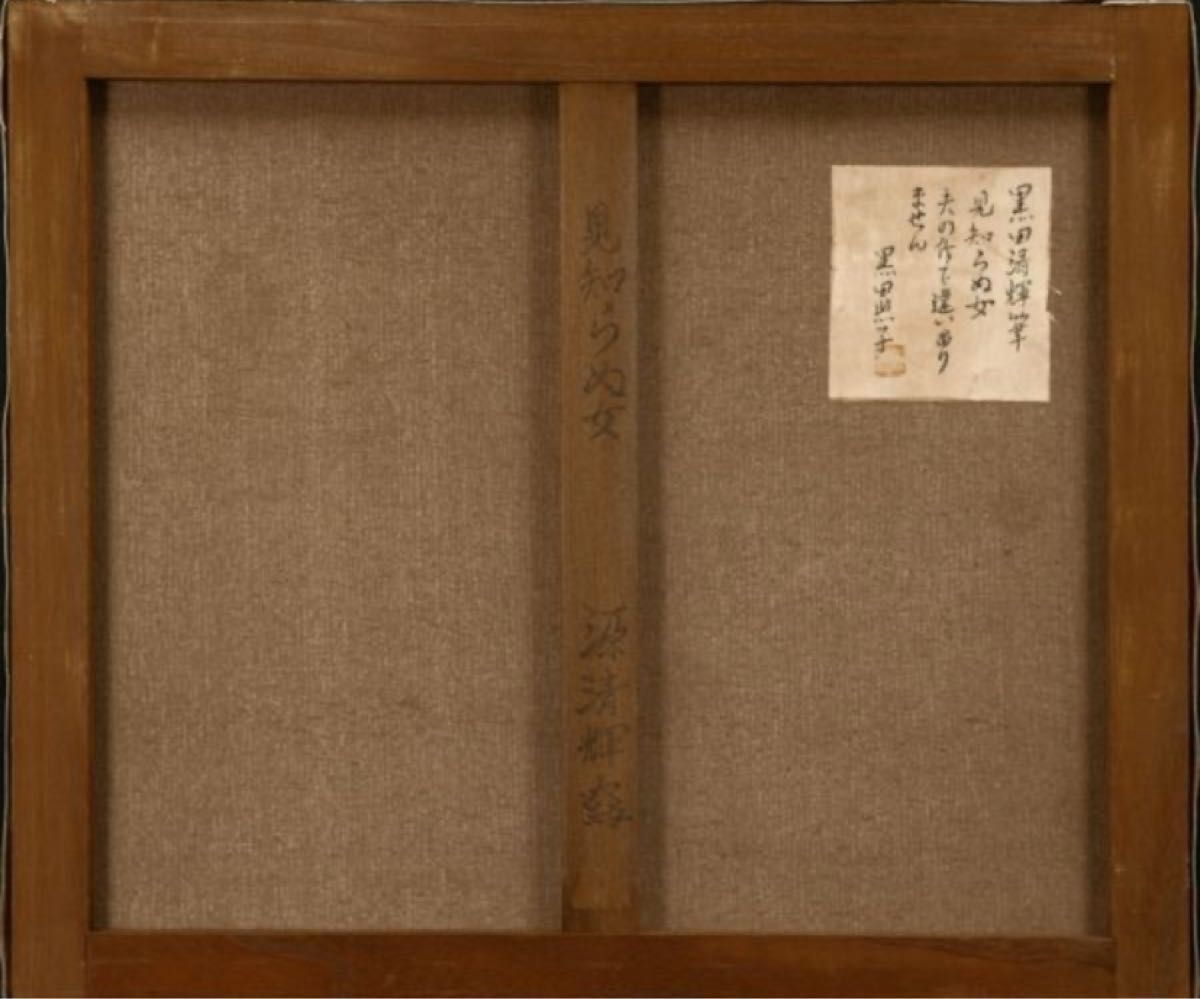 黒田清輝筆
見知らぬ女
夫の作で違いあり
ません
黒田照子
見知らぬ女
源清輝画